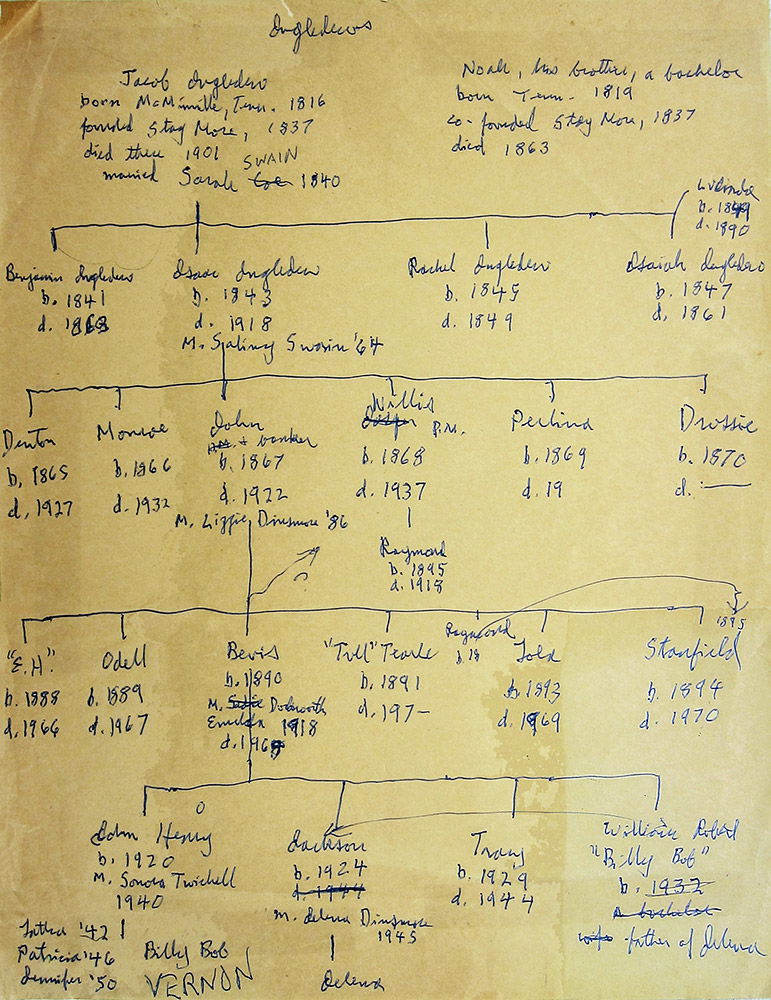 Ingledews
Jacob Ingledew
born McMinnville, Tenn. 1816
founded Stay More, 1837
died there 1901
SWAIN
married Sarah Coe 1840
Noah, his brother, a bachelor
born Tenn. 1819
co-founded Stay More, 1837
died 1863
Lucinda
b. 1849
d. 1890
Benjamin Ingledew
b. 1841
d. 1863
Isaac Ingledew
b. 1843
d. 1918
M. Salina Swain '64
Rachel Ingledew
b. 1845
d. 1849
Isaiah Ingledew
b. 1847
d. 1861
Denton
b. 1865
d. 1927
Monroe
b. 1866
d. 1932
John
P.M. + banker
b. 1867
d. 1922
M. Lizzie Dinsmore '86
Willis
P.M.
b. 1868
d. 1937
Raymond
b. 1895
d. 1918
Perlina
b. 1869
d. 19
Drussie
b. 1870
d. —
"E.H."
b. 1888
d. 1966
Odell
b. 1889
d. 1967
Bevis
b. 1890
M. Sadie Dobworth
Emelda 1918
d. 1969
"Tull" Tearle
b. 1891
d. 197-
Raymond
b. 18
Lola
b. 1893
d. 1969
1895
Stanfield
b. 1894
d. 1970
John Henry
b. 1920
M. Sonora Twichell
1940
Latha '42
Patricia '46
Jennifer '50
Billy Bob
VERNON
Jackson
b. 1924
d. 1944
M. Jelena Dinsmore
1945
Jelena
Tracy
b. 1929
d. 1944
William Robert
"Billy Bob"
b. 1932
a bachelor
wife father of Jelena